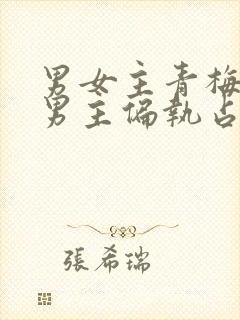 男女主青梅
男主偏執占
張希瑞